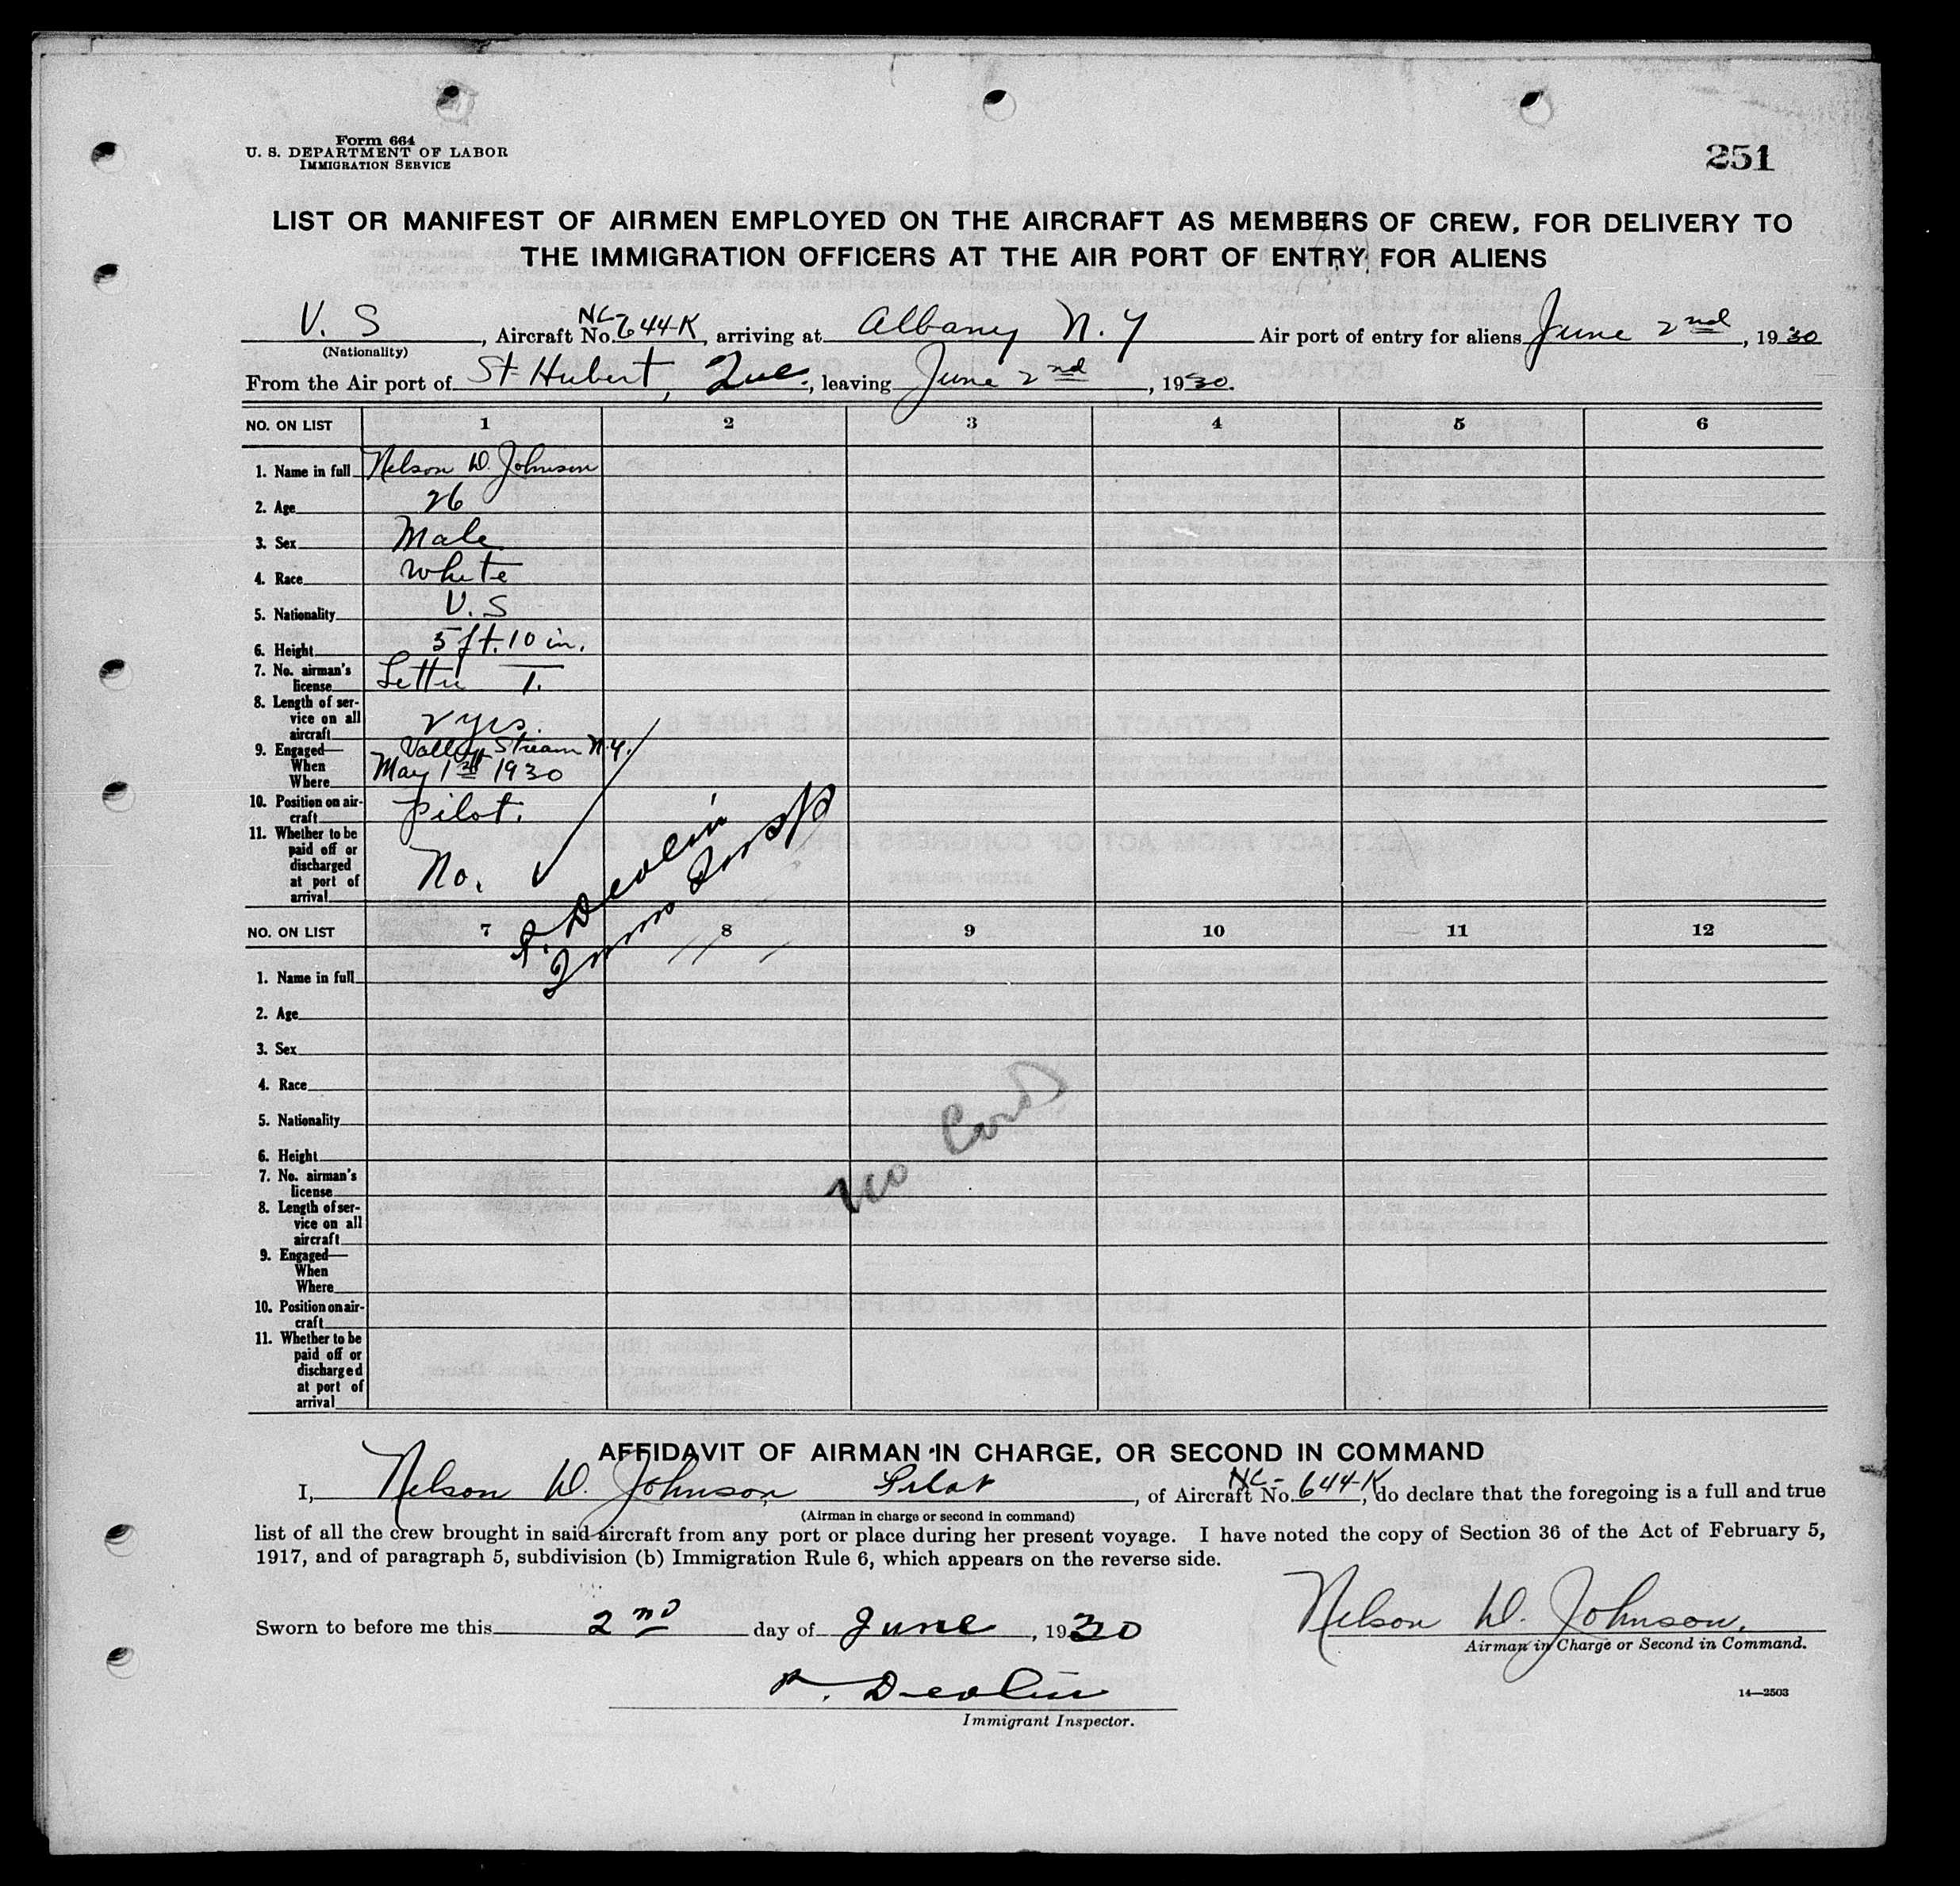 Form 664
U. S. DEPARTMENT OF LABOR
IMMIGRATION SERVICE
251
LIST OR MANIFEST OF AIRMEN EMPLOYED ON THE AIRCRAFT AS MEMBERS OF CREW, FOR DELIVERY TO
THE IMMIGRATION OFFICERS AT THE AIR PORT OF ENTRY FOR ALIENS
U. S, Aircraft No. NC-644-K, arriving at Albany N. Y Air port of entry for aliens June 2nd, 1930
(Nationality)
From the Air port of St Hubert, Que., leaving June 2nd, 1930.
NO. ON LIST 1 2 3 4 5 6
1. Name in full Nelson W. Johnson
2. Age 26
3. Sex Male
4. Race White
5. Nationality U. S
6. Height 5 ft. 10 in.
7. No. airman's
license Letter T.
8. Length of ser-
vice on all
aircraft 2 yrs.
9. Engaged— Valley Stream N.Y.
When May 1st 1930
Where
10. Position on air-
craft pilot.
11. Whether to be
paid off or
discharged
at port of
arrival No.
P. Devlin
Immg Insp
NO. ON LIST 7 8 9 10 11 12
1. Name in full
2. Age
3. Sex
4. Race
5. Nationality
6. Height
7. No. airman's
license
8. Length of ser-
vice on all
aircraft
9. Engaged—
When
Where
10. Position on air-
craft
11. Whether to be
paid off or
discharged
at port of
arrival
No Card
AFFIDAVIT OF AIRMAN IN CHARGE, OR SECOND IN COMMAND
I, Nelson W. Johnson, Pilot, of Aircraft No. NC-644-K, do declare that the foregoing is a full and true
(Airman in charge or second in command)
list of all the crew brought in said aircraft from any port or place during her present voyage. I have noted the copy of Section 36 of the Act of February 5,
1917, and of paragraph 5, subdivision (b) Immigration Rule 6, which appears on the reverse side.
Sworn to before me this 2nd day of June, 1930
Nelson W. Johnson.
Airman in Charge or Second in Command.
P. Devlin
Immigrant Inspector.
14—2503